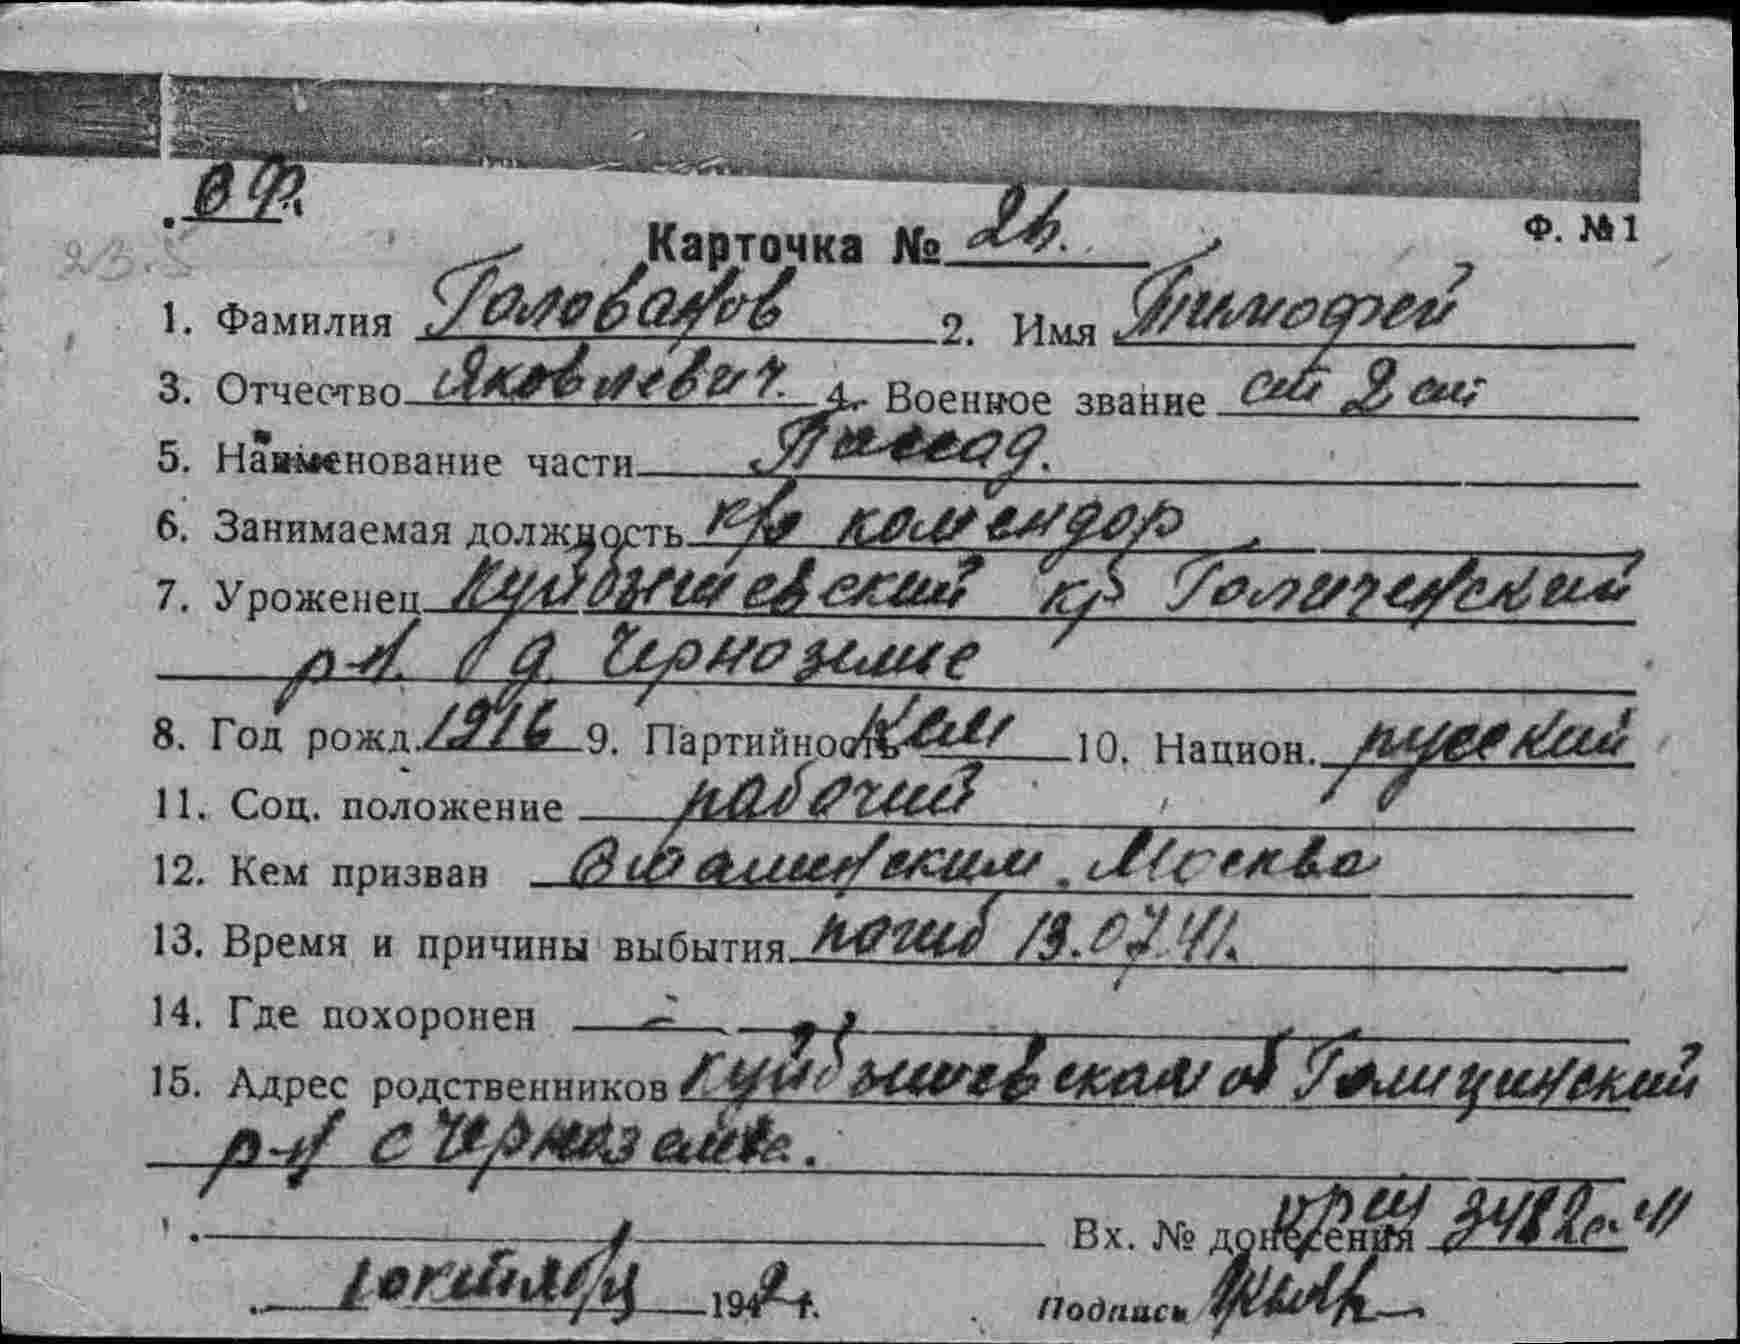 СФ.
Карточка № 2 Ф. №1
23.5
1. Фамилия Голованов 2. Имя Тимофей
3. Отчество Яковлевич. 4. Военное звание ст 2 ст
5. Наименование части Пассад.
6. Занимаемая должность к/о комендор
7. Уроженец Куйбышевский кр Голиченский
р-н. д. Черноземье
8. Год рожд. 1916 9. Партийность Ксм 10. Национ. русский
11. Соц. положение рабочий
12. Кем призван Сталинским. Москва
13. Время и причины выбытия погиб 19.07.41.
14. Где похоронен —
15. Адрес родственников Куйбышевская об Голицинский
р-н с Черноземье.
Вх. № донесения 3482с. 41
1 октября 1942 г. Подпись